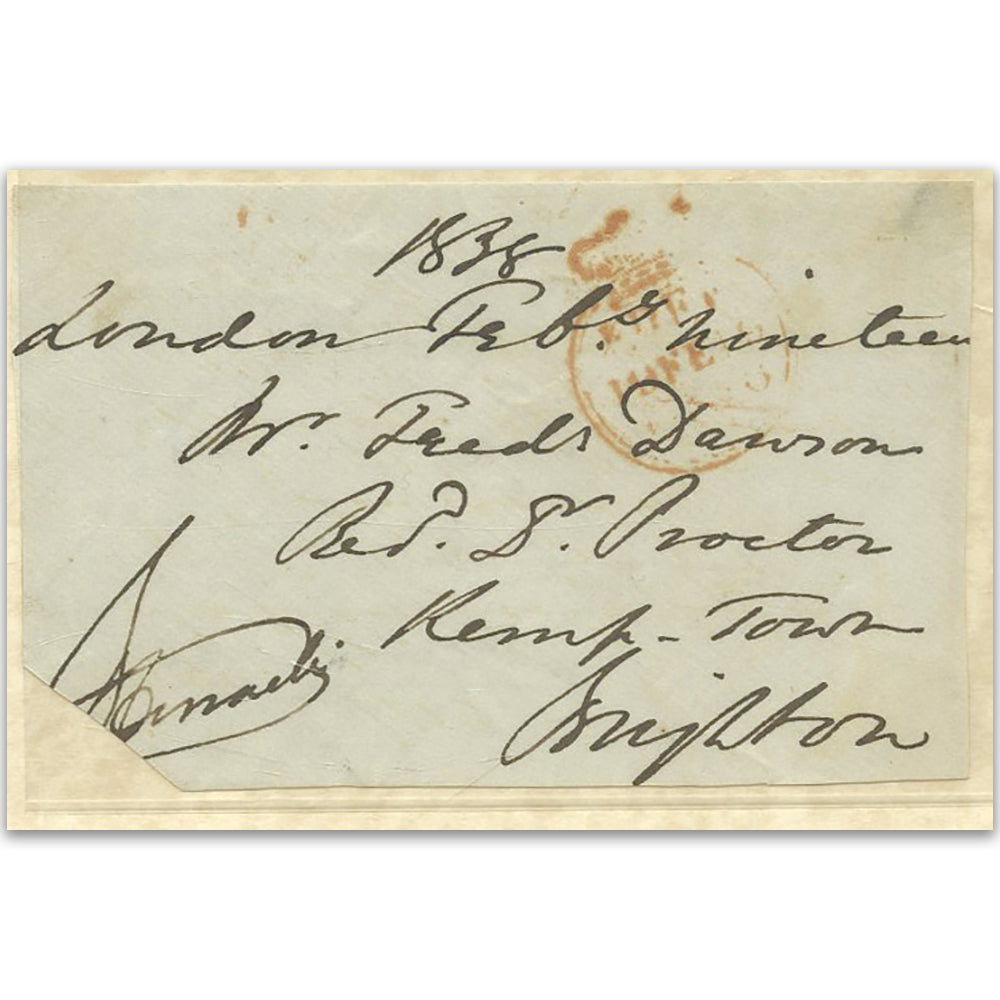 1838
London Feb.y nineteen
Mr. Fredk Dawson
Revd. Dr. Proctor
Kemp-Town
Brighton